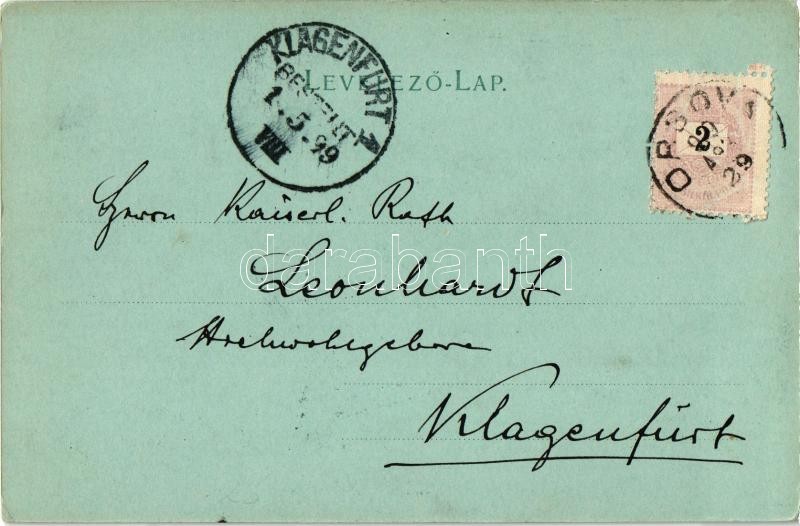 KLAGENFURT 1
BESTELLT
1.5.99
VIII
LEVELEZŐ-LAP.
2
ORSOVA
899
APR
29
Herrn Kaiserl. Rath
darabanth
Leonhardt
Hochwohlgeboren
Klagenfurt